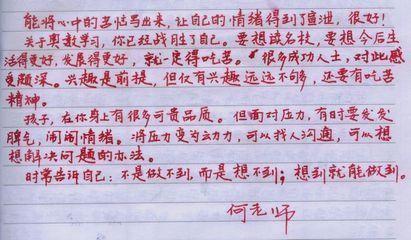 能将心中的苦恼写出来，让自己的情绪得到了宣泄，很好！
关于奥数学习，你已经战胜了自己。要想读名校，要想今后生
活得更好，发展得更好，就一定得吃苦。很多成功人士，对此感
受颇深。兴趣是前提，但仅有兴趣远远不够，还要有吃苦
精神。
孩子，在你身上有很多可贵品质。但面对压力，有时要发发
脾气，闹闹情绪。将压力变为动力，可以找人沟通，可以想
想解决问题的办法。
时常告诉自己：不是做不到，而是想不到；想到就能做到。
何老师